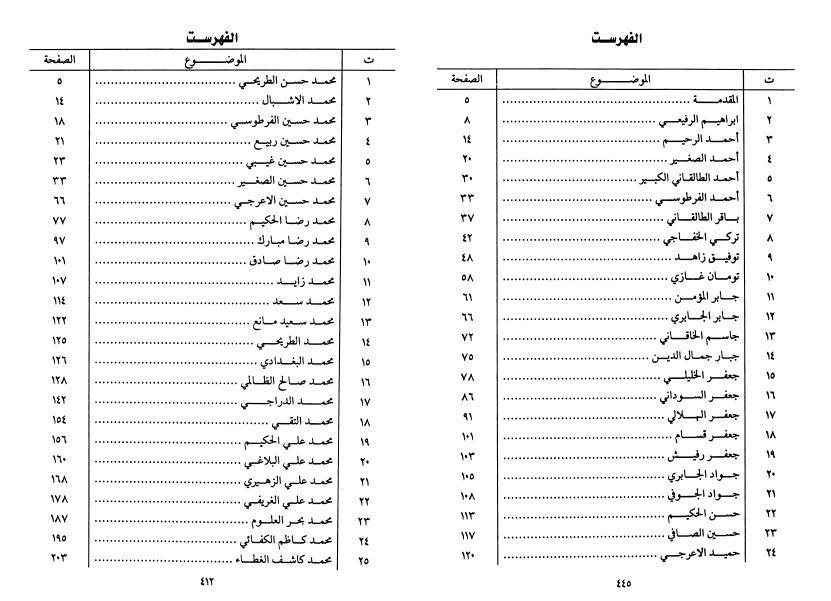 الفهرست
ت الموضوع الصفحة
١ المقدمة ٥
٢ ابراهيم الرفيعي ٨
٣ أحمد الرحيم ١٤
٤ أحمد الصغير ٢٠
٥ أحمد الطالقاني الكبير ٣٠
٦ أحمد الفرطوسي ٣٣
٧ باقر الطالقاني ٣٧
٨ تركي الخفاجي ٤٢
٩ توفيق زاهد ٤٨
١٠ تومان غازي ٥٨
١١ جابر المؤمن ٦١
١٢ جابر الجابري ٦٦
١٣ جاسم الخاقاني ٧٢
١٤ جبار جمال الدين ٧٥
١٥ جعفر الخليلي ٧٨
١٦ جعفر السوداني ٨٦
١٧ جعفر الهلالي ٩١
١٨ جعفر قسام ١٠١
١٩ جعفر رفيش ١٠٣
٢٠ جواد الجابري ١٠٥
٢١ جواد الجوفي ١٠٨
٢٢ حسن الحكيم ١١٣
٢٣ حسين الصافي ١١٧
٢٤ حميد الاعرجي ١٢٠
٤٤٥
الفهرست
ت الموضوع الصفحة
١ محمد حسن الطريحي ٥
٢ محمد الاشبال ١٤
٣ محمد حسين الفرطوسي ١٨
٤ محمد حسين ربيع ٢١
٥ محمد حسين غيبي ٢٣
٦ محمد حسين الصغير ٣٣
٧ محمد حسين الاعرجي ٦٦
٨ محمد رضا الحكيم ٧٧
٩ محمد رضا مبارك ٩٧
١٠ محمد رضا صادق ١٠١
١١ محمد زايد ١٠٧
١٢ محمد سعد ١١٤
١٣ محمد سعيد مانع ١٢٢
١٤ محمد الطريحي ١٢٥
١٥ محمد البغدادي ١٢٦
١٦ محمد صالح الظالمي ١٢٨
١٧ محمد الدراجي ١٤٢
١٨ محمد التقي ١٥٤
١٩ محمد علي الحكيم ١٥٦
٢٠ محمد علي البلاغي ١٦٠
٢١ محمد علي الزهيري ١٦٨
٢٢ محمد علي الغريفي ١٧٨
٢٣ محمد بحر العلوم ١٨٧
٢٤ محمد كاظم الكفائي ١٩٥
٢٥ محمد كاشف الغطاء ٢٠٣
٤١٢